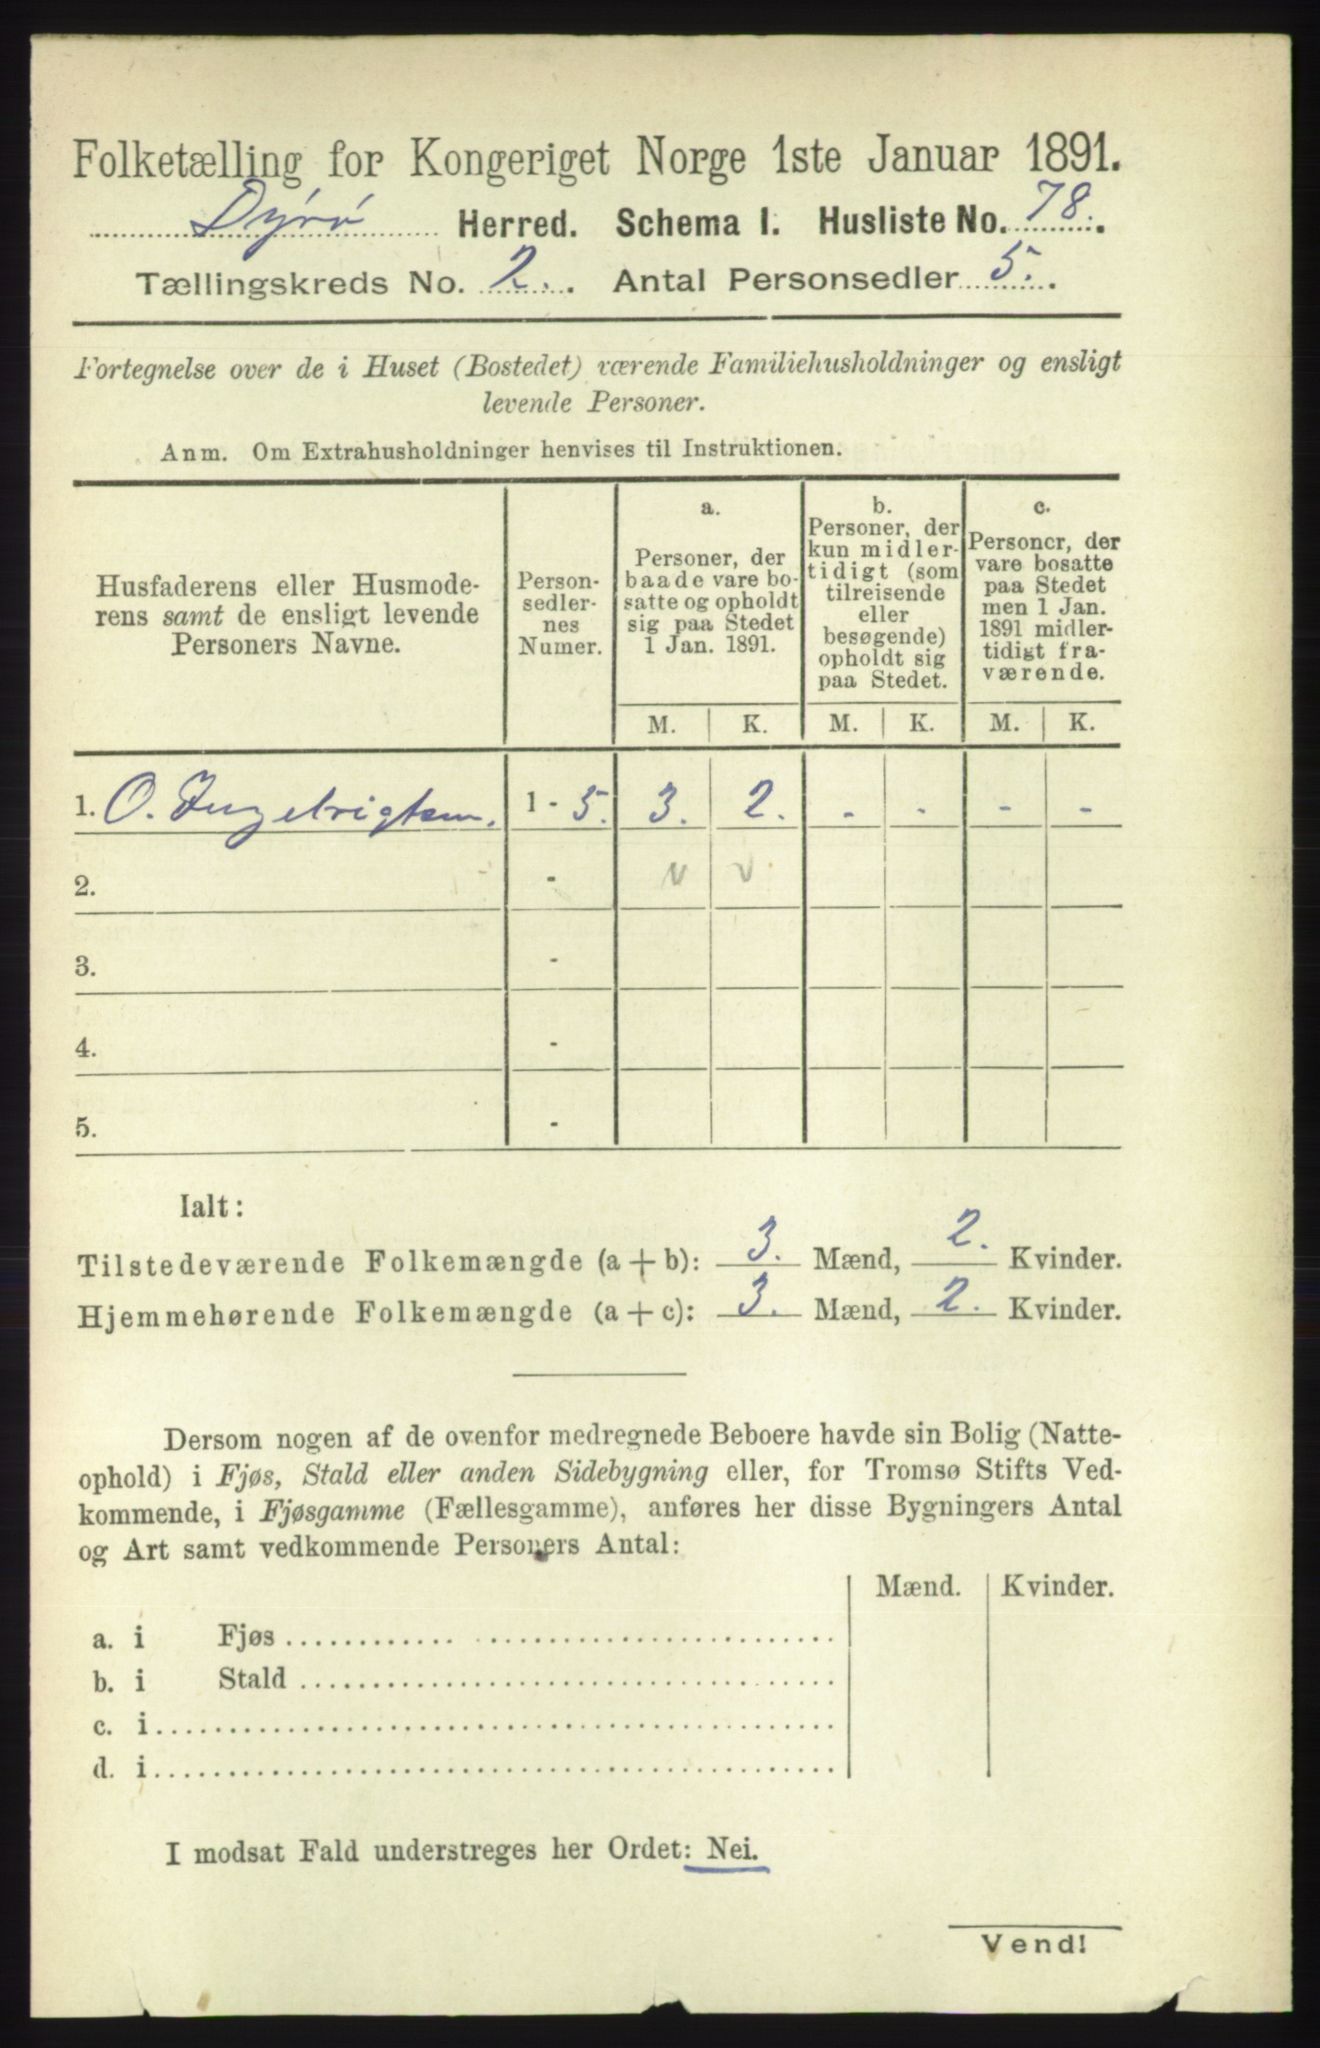 Folketælling for Kongeriget Norge 1ste Januar 1891.
Dyrø Herred. Schema I. Husliste No. 78.
Tællingskreds No. 2. Antal Personsedler 5.
Fortegnelse over de i Huset (Bostedet) værende Familiehusholdninger og ensligt
levende Personer.
Anm. Om Extrahusholdninger henvises til Instruktionen.
Husfaderens eller Husmode-
rens samt de ensligt levende
Personers Navne.
Person-
sedler-
nes
Numer.
a.
Personer, der
baade vare bo-
satte og opholdt
sig paa Stedet
1 Jan. 1891.
b.
Personer, der
kun midler-
tidigt (som
tilreisende
eller
besøgende)
opholdt sig
paa Stedet.
c.
Personer, der
vare bosatte
paa Stedet
men 1 Jan.
1891 midler-
tidigt fra-
værende.
M. K. M. K. M. K.
1. O. Ingebrigtsen. 1 - 5. 3. 2. - - - -
2. - v v
3. -
4. -
5. -
Ialt:
Tilstedeværende Folkemængde (a + b): 3. Mænd, 2. Kvinder.
Hjemmehørende Folkemængde (a + c): 3. Mænd, 2. Kvinder.
Dersom nogen af de ovenfor medregnede Beboere havde sin Bolig (Natte-
ophold) i Fjøs, Stald eller anden Sidebygning eller, for Tromsø Stifts Ved-
kommende, i Fjøsgamme (Fællesgamme), anføres her disse Bygningers Antal
og Art samt vedkommende Personers Antal:
Mænd. Kvinder.
a. i Fjøs
b. i Stald
c. i
d. i
I modsat Fald understreges her Ordet: Nei.
Vend!